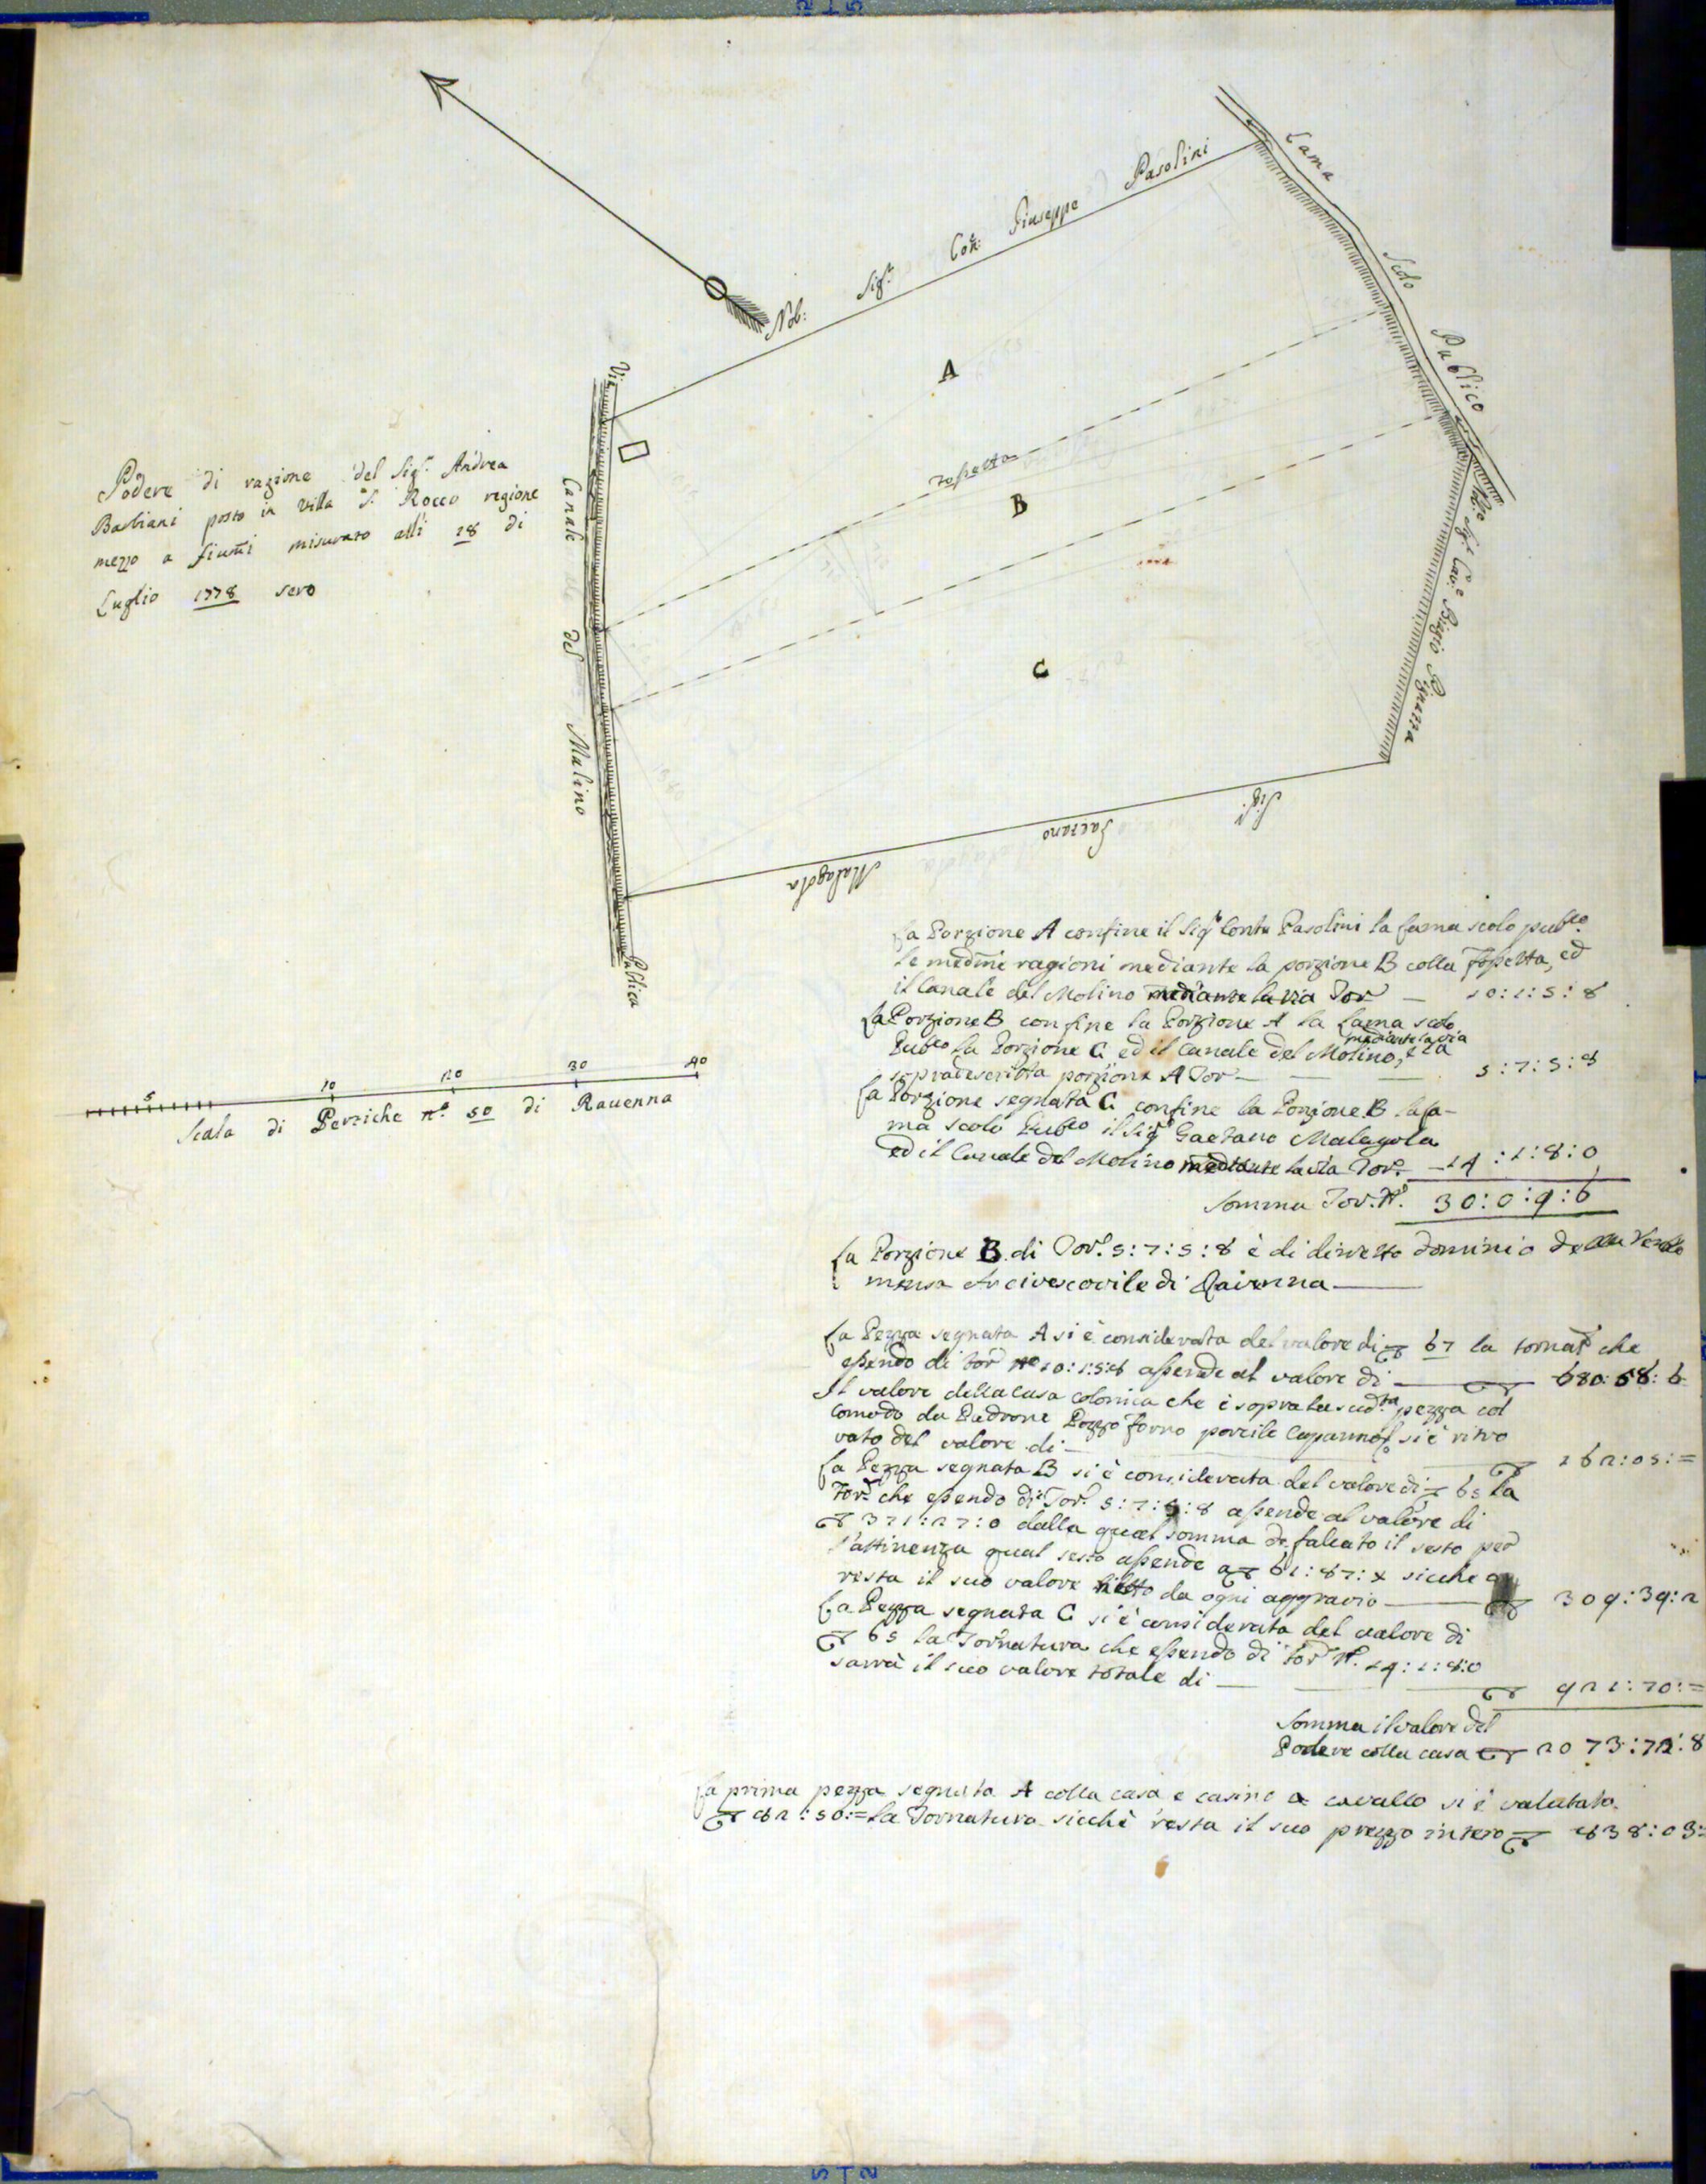 Nob: Sig.r Con: Giuseppe Pasolini
Lama Scolo Publico
Sig.r Cav.e Biagio Pignatta
A
Fossetta
B
C
Via
Publica
Canale del Malino
Sig.r Gaetano Malagola
Podere di ragione del Sig.r Andrea
Barbiani posto in Villa S. Rocco regione
mezzo a fiumi misurato alli 28 di
Luglio 1778 sero
5 10 20 30 40
Scala di Pertiche n.o 50 di Ravenna
La Porzione A confine il Sig.r Conte Pasolini la Lama scolo pub.co
le medme ragioni mediante la porzione B colla Fossetta, ed
il Canale del Molino mediante la via Tor — 10:1:5:8
La Porzione B confine la Porzione A la Lama scolo
Pub.co la Porzione C ed il Canale del Molino, mediante la via e la
sopradescritta porzione A Tor — 5:7:5:8
La Porzione segnata C confine la Porzione B la La-
ma scolo Pub.co il Sig.r Gaetano Malagola
ed il Canale del Molino mediante la via Tor. — 14:1:8:0
Somma Tor. N.o 30:0:9:6
La Porzione B di Tor. 5:7:5:8 è di diretto dominio della
mensa Arcivescovile di Ravenna —
La Pezza segnata A si è considerata del valore di 67 la tornat.a che
essendo di Tor n.o 10:1:5:8 assende al valore di — 680:58:6
Il valore della casa colonica che è sopra la sud.ta pezza col
comodo da Padrone Pozzo Forno porcile Capanno si è ritro
vato del valore di — 162:05:=
La Pezza segnata B si è considerata del valore di 65 la
Tor.a che essendo di Tor. 5:7:5:8 assende al valore di
371:27:0 dalla qual somma defalcato il sesto per
l'attinenza qual sesto assende a 61:87:x sicche
resta il suo valore netto da ogni aggravio — 309:39:2
La Pezza segnata C si è considerata del valore di
65 la Tornatura che essendo di Tor N. 14:1:8:0
sarrà il suo valore totale di — 921:70:=
Somma il valore del
Podere colla casa 2073:72:8
La prima pezza segnata A colla casa e casino a cavallo si è valutata
82:50:= la Tornatura sicchè resta il suo prezzo intero 838:03: